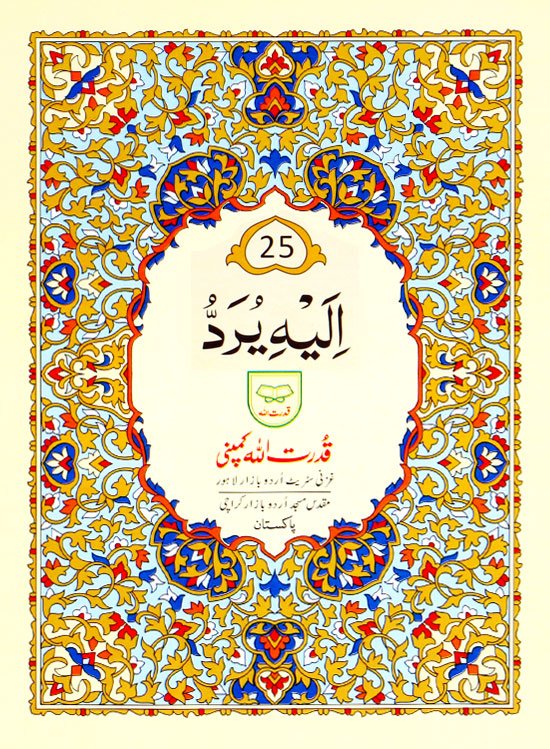 25
اِلَيْهِ يُرَدُّ
قدرت اللہ
قُدرت اللہ کمپنی
غزنی سٹریٹ اُردو بازار لاہور
مقدس مسجد اُردو بازار کراچی
پاکستان